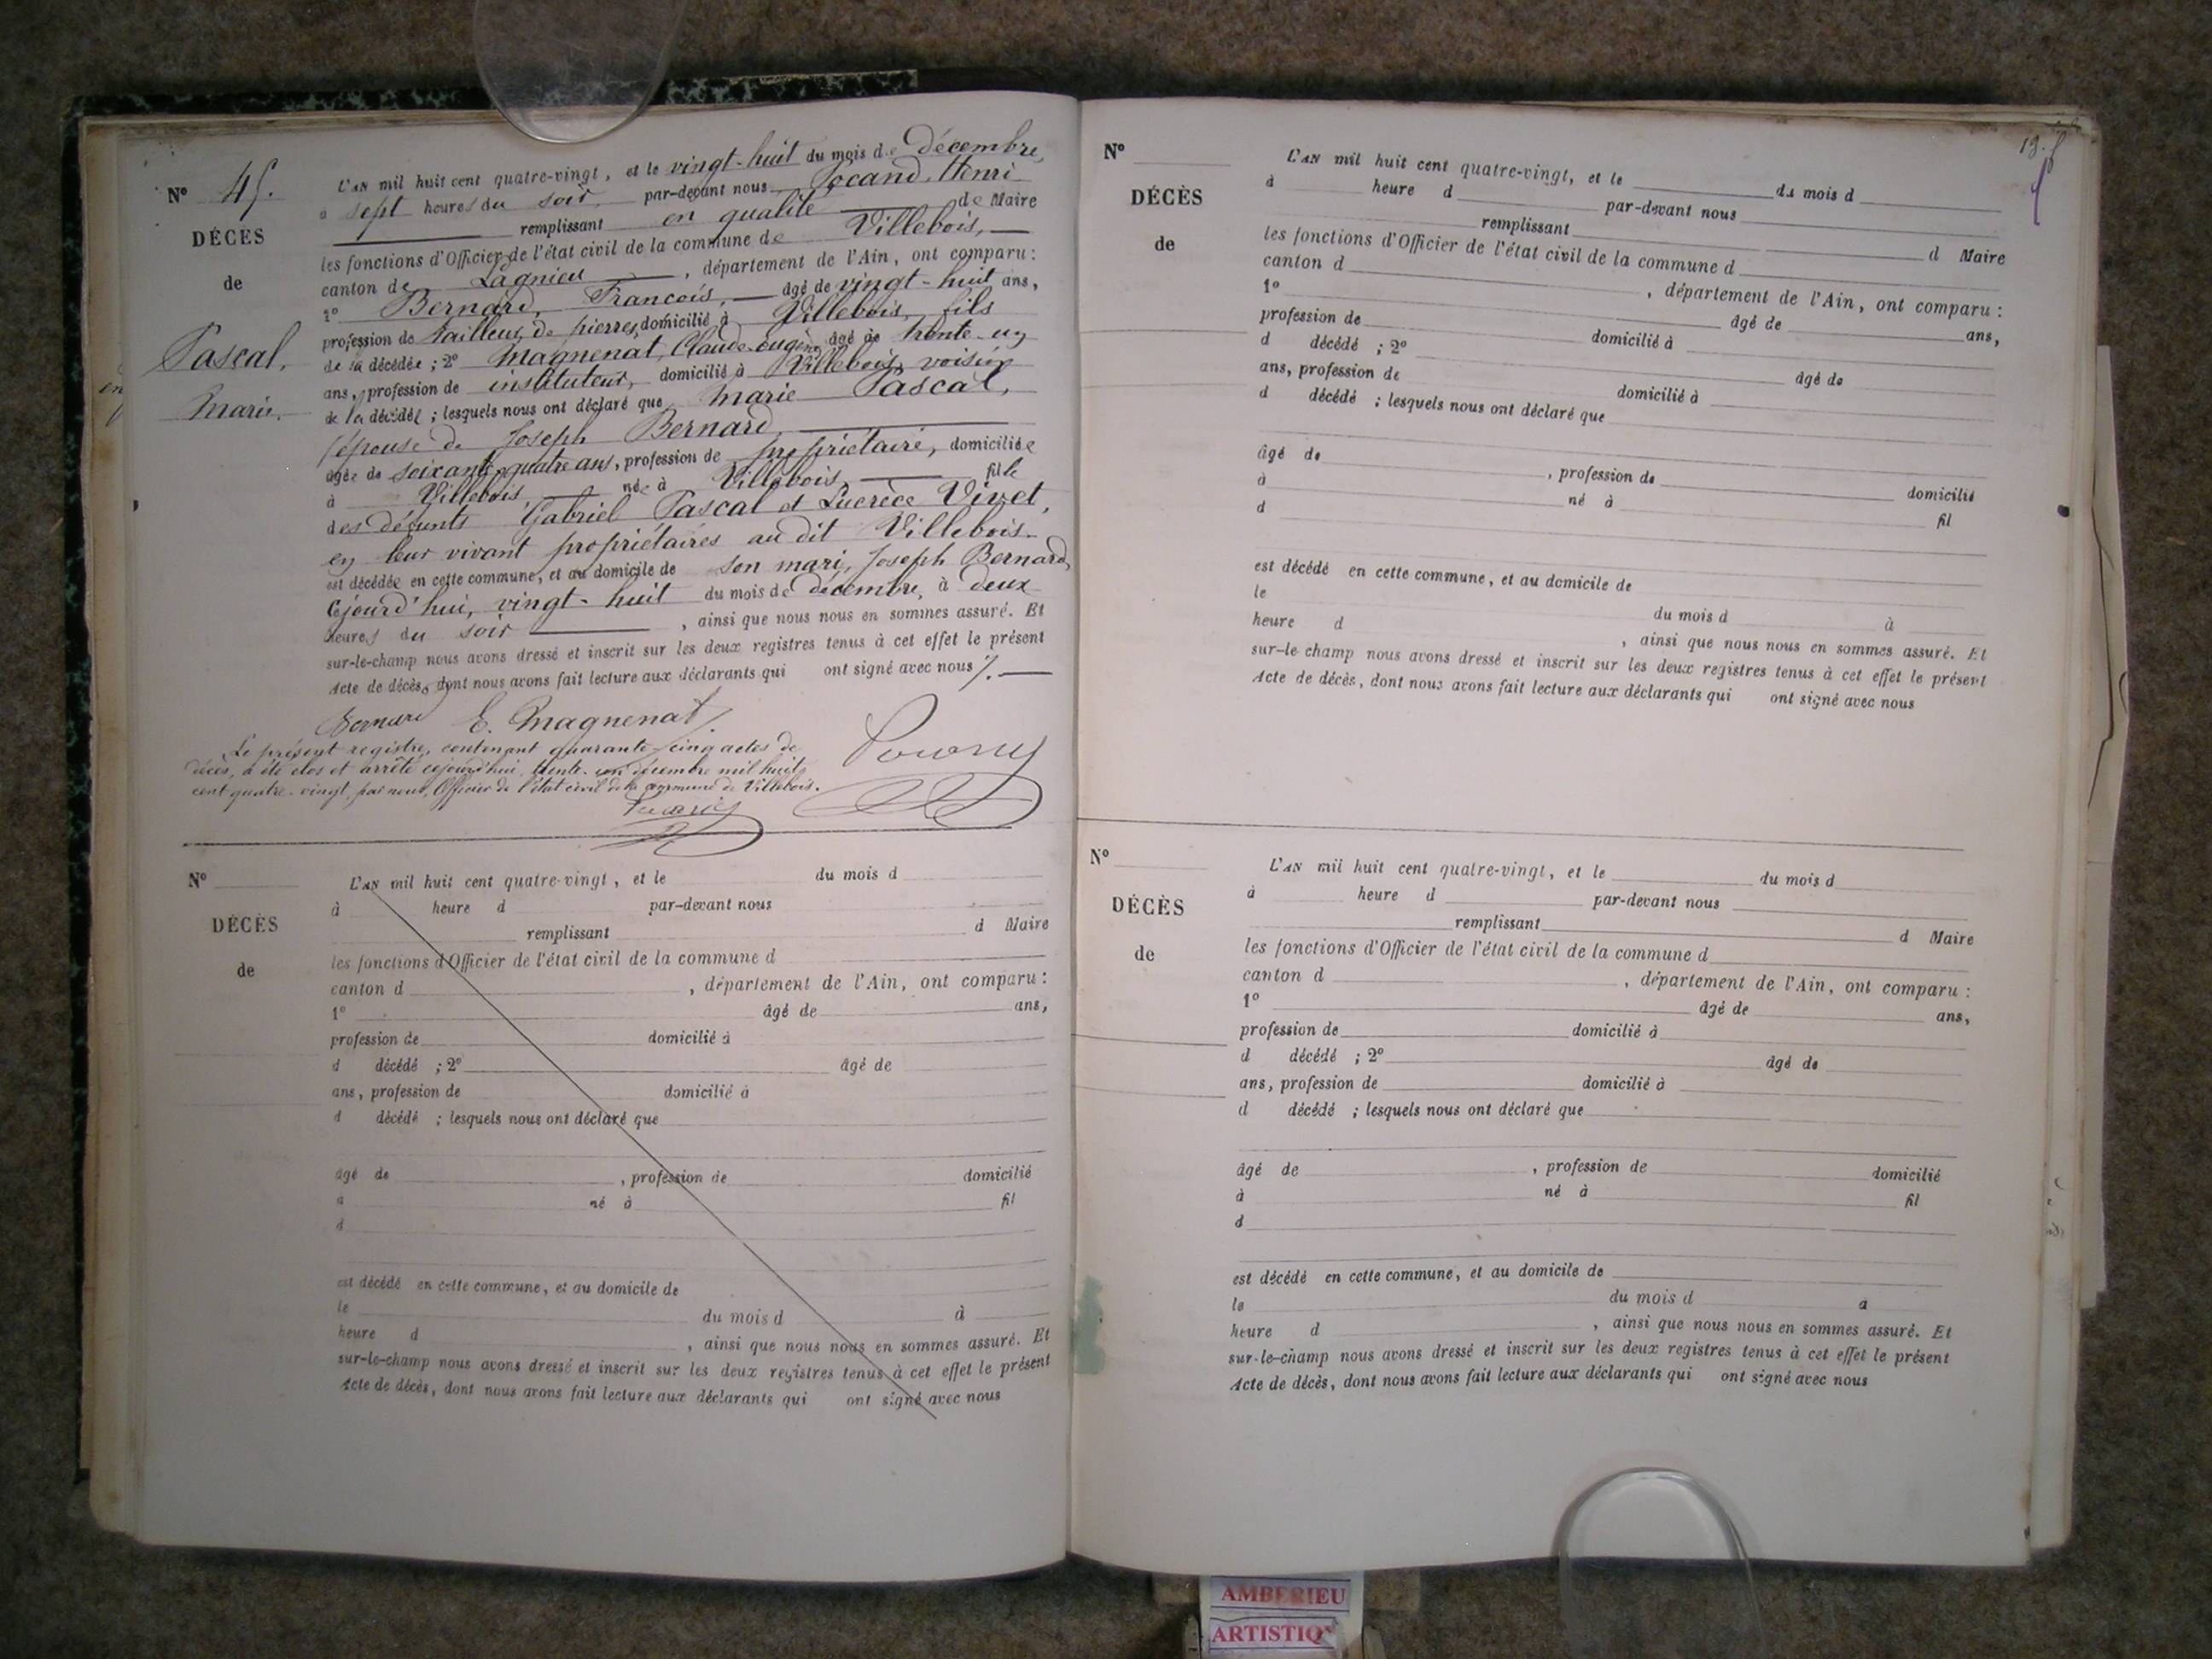 N° 45.
DÉCÈS
de
Pascal,
Marie.
L'AN mil huit cent quatre-vingt, et le vingt-huit du mois de décembre,
à sept heures du soir, par-devant nous Jocand, Henri
remplissant en qualité de Maire
les fonctions d'Officier de l'état civil de la commune de Villebois,
canton de Lagnieu, département de l'Ain, ont comparu :
1° Bernard, François, âgé de vingt-huit ans,
profession de tailleur de pierres, domicilié à Villebois, fils
de la décédée ; 2° Magnenat, Claude-Eugène, âgé de trente-un
ans, profession de instituteur, domicilié à Villebois, voisin
de la décédée ; lesquels nous ont déclaré que Marie Pascal,
épouse de Joseph Bernard,
âgée de soixante-quatre ans, profession de propriétaire, domiciliée
à Villebois, née à Villebois fille
des défunts Gabriel Pascal et Lucrèce Vivet,
en leur vivant propriétaires au dit Villebois
est décédée en cette commune, et au domicile de son mari, Joseph Bernard,
cejourd'hui, vingt-huit du mois de décembre, à deux
heures du soir, ainsi que nous nous en sommes assuré. Et
sur-le-champ nous avons dressé et inscrit sur les deux registres tenus à cet effet le présent
Acte de décès, dont nous avons fait lecture aux déclarants qui ont signé avec nous ./.
Bernard E. Magnenat
Le présent registre, contenant quarante-cinq actes de
décès, a été clos et arrêté cejourd'hui, trente-un décembre mil huit
cent quatre-vingt, par nous, Officier de l'état civil de la commune de Villebois.
N°
DÉCÈS
de
L'AN mil huit cent quatre-vingt, et le du mois d
à heure d par-devant nous
remplissant d Maire
les fonctions d'Officier de l'état civil de la commune d
canton d , département de l'Ain, ont comparu :
1° âgé de ans,
profession de domicilié à
d décédé ; 2° âgé de
ans, profession de domicilié à
d décédé ; lesquels nous ont déclaré que
âgé de , profession de domicilié
à né à fil
d
est décédé en cette commune, et au domicile de
le du mois d à
heure d , ainsi que nous nous en sommes assuré. Et
sur-le-champ nous avons dressé et inscrit sur les deux registres tenus à cet effet le présent
Acte de décès, dont nous avons fait lecture aux déclarants qui ont signé avec nous
N°
DÉCÈS
de
L'AN mil huit cent quatre-vingt, et le du mois d
à heure d par-devant nous
remplissant d Maire
les fonctions d'Officier de l'état civil de la commune d
canton d , département de l'Ain, ont comparu :
1° âgé de ans,
profession de domicilié à
d décédé ; 2° âgé de
ans, profession de domicilié à
d décédé ; lesquels nous ont déclaré que
âgé de , profession de domicilié
à né à fil
d
est décédé en cette commune, et au domicile de
le du mois d à
heure d , ainsi que nous nous en sommes assuré. Et
sur-le-champ nous avons dressé et inscrit sur les deux registres tenus à cet effet le présent
Acte de décès, dont nous avons fait lecture aux déclarants qui ont signé avec nous
N°
DÉCÈS
de
L'AN mil huit cent quatre-vingt, et le du mois d
à heure d par-devant nous
remplissant d Maire
les fonctions d'Officier de l'état civil de la commune d
canton d , département de l'Ain, ont comparu :
1° âgé de ans,
profession de domicilié à
d décédé ; 2° âgé de
ans, profession de domicilié à
d décédé ; lesquels nous ont déclaré que
âgé de , profession de domicilié
à né à fil
d
est décédé en cette commune, et au domicile de
le du mois d à
heure d , ainsi que nous nous en sommes assuré. Et
sur-le-champ nous avons dressé et inscrit sur les deux registres tenus à cet effet le présent
Acte de décès, dont nous avons fait lecture aux déclarants qui ont signé avec nous
AMBERIEU
ARTISTIQ